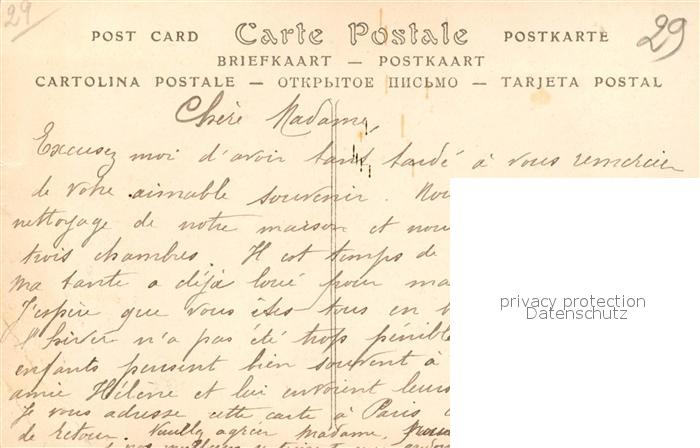 29
29
POST CARD Carte Postale POSTKARTE
BRIEFKAART — POSTKAART
CARTOLINA POSTALE — ОТКРЫТОЕ ПИСЬМО — TARJETA POSTAL
Chère Madame,
Excusez moi d'avoir tant tardé à vous remercier
de votre aimable souvenir. Nou
nettoyage de notre maison et nou
trois chambres. Il est temps de
ma tante a déjà loué pour ma
J'espère que vous êtes tous en b
l'hiver n'a pas été trop pénible
enfants pensent bien souvent à
amie Hélène et lui envoient leurs
Je vous adresse cette carte à Paris
de retour. Veuillez agréer Madame,
nos meilleurs
privacy protection
Datenschutz